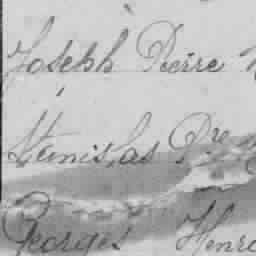 Joseph Pierre
Stanislas Pre
Georges Henri